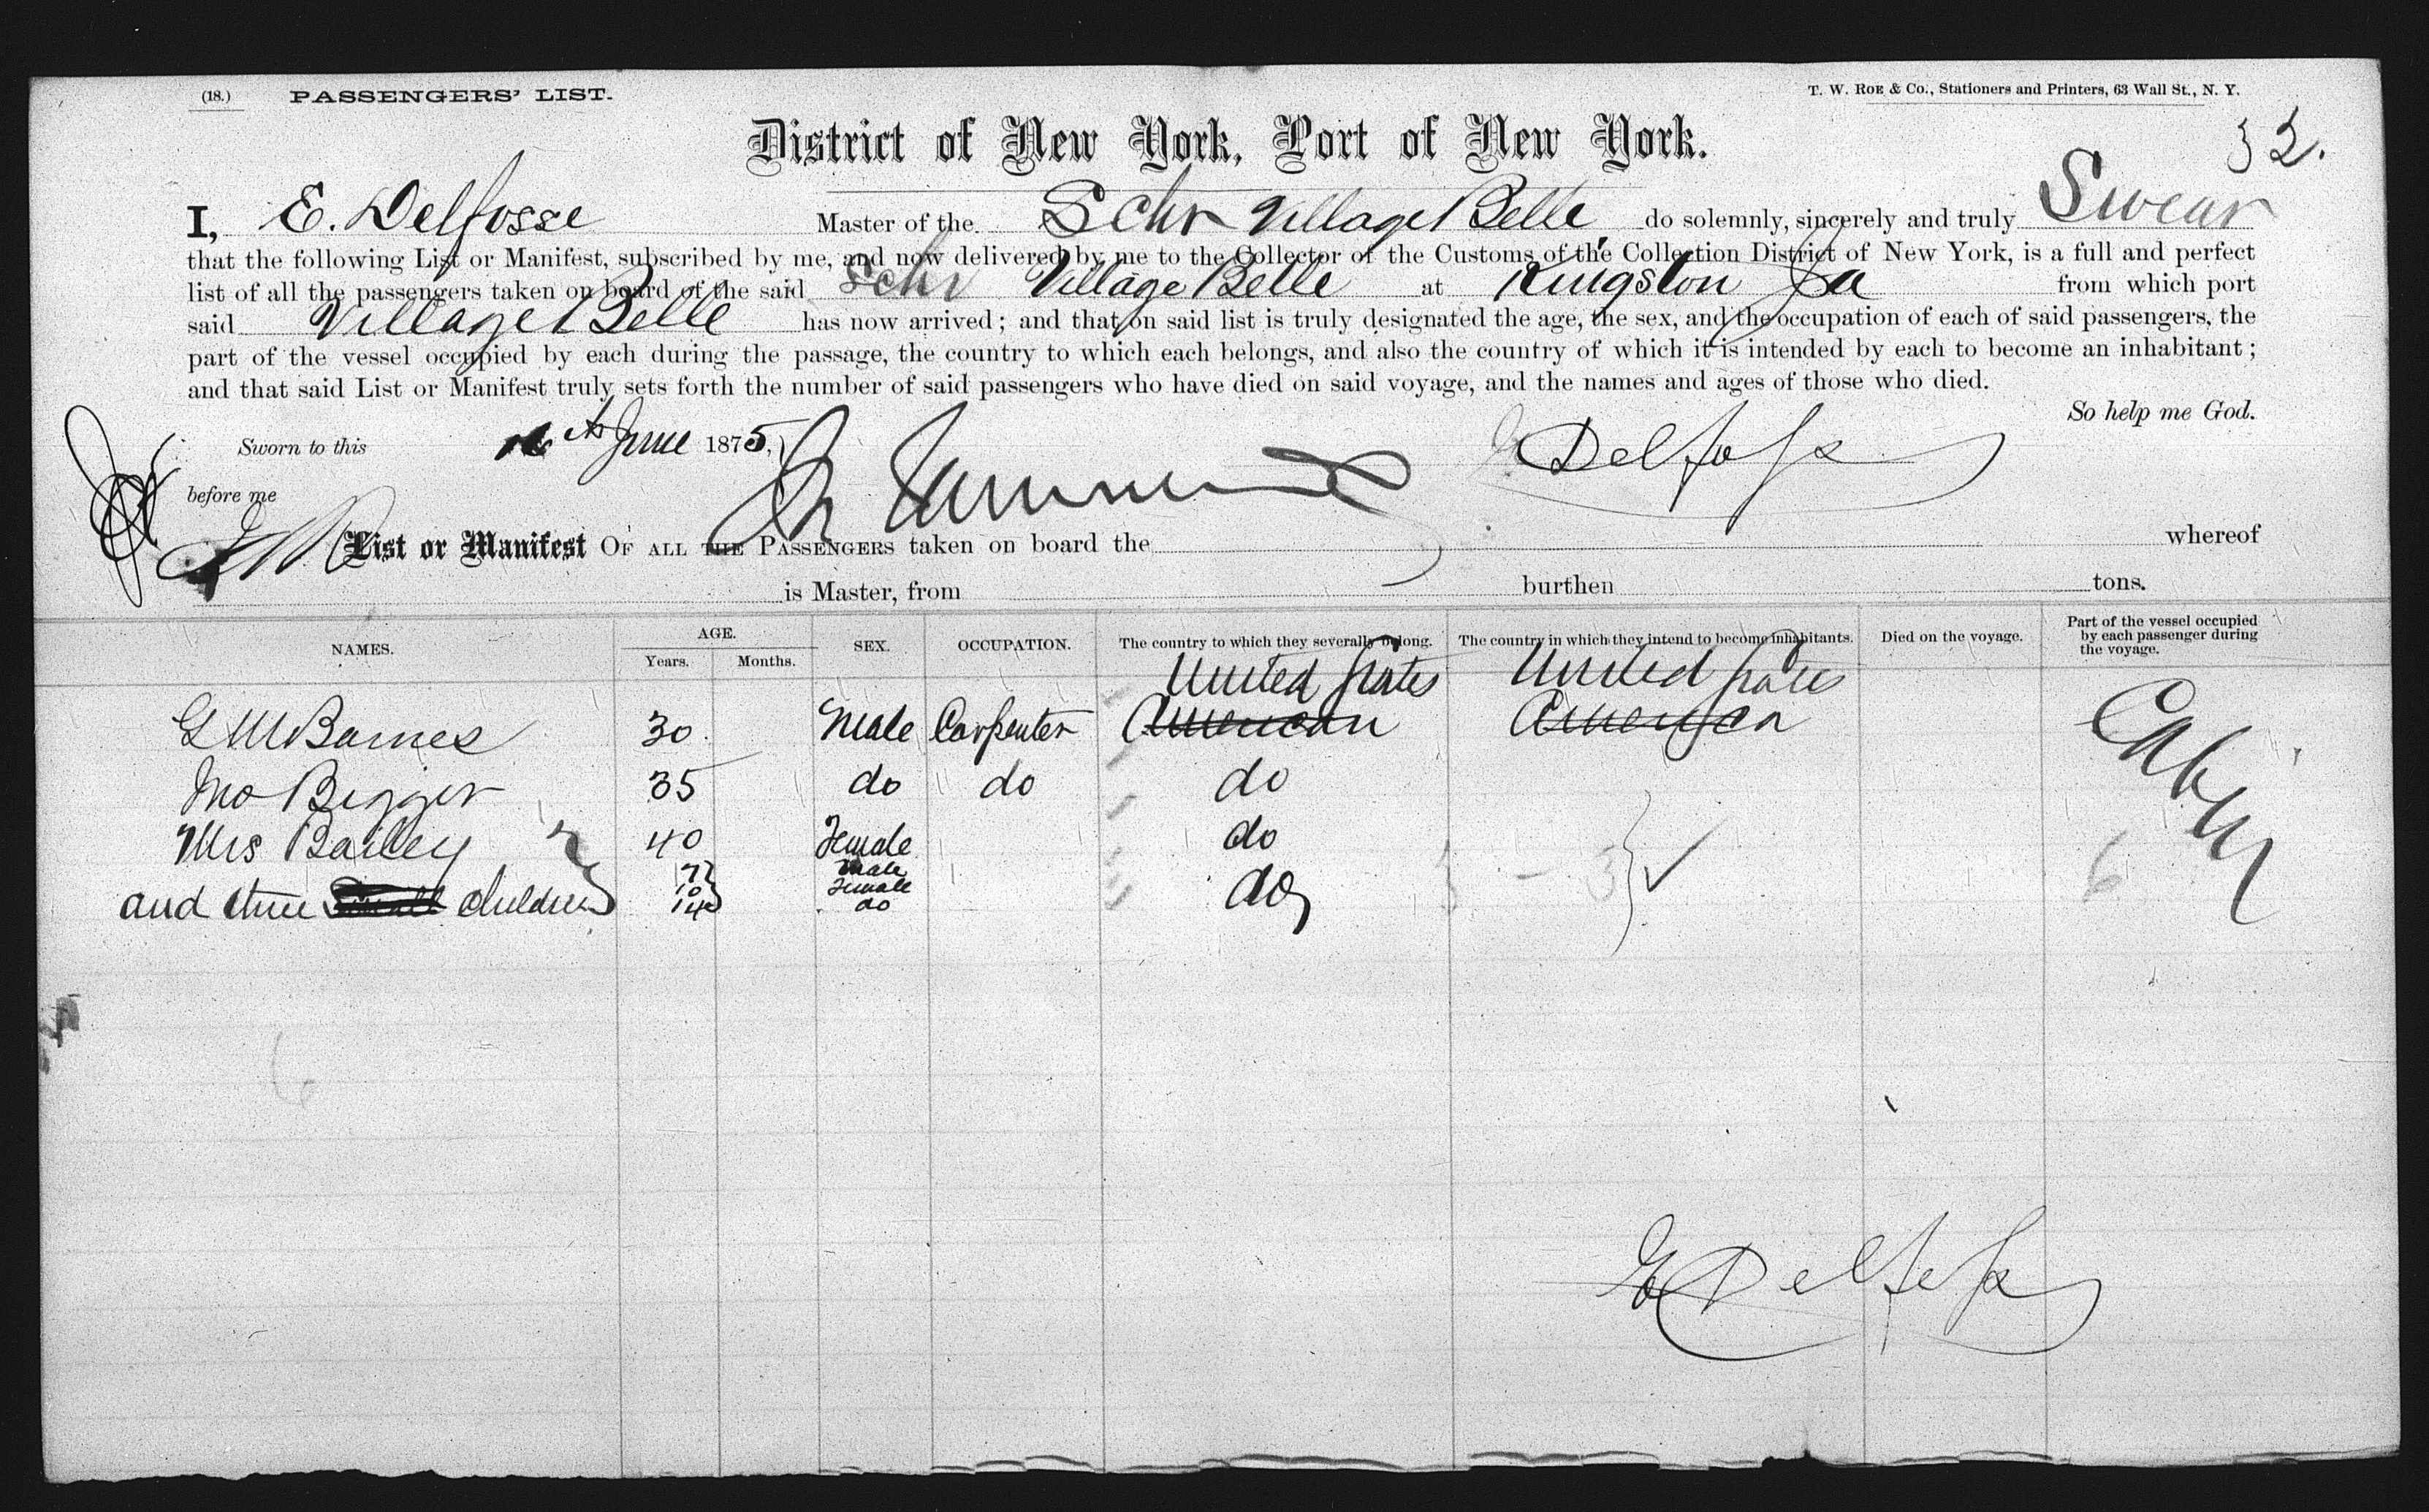 (18.) PASSENGERS' LIST. T. W. ROE & Co., Stationers and Printers, 63 Wall St., N. Y.
32.
District of New York, Port of New York.
I, E. Delfosse Master of the Schr Village Belle, do solemnly, sincerely and truly Swear
that the following List or Manifest, subscribed by me, and now delivered by me to the Collector of the Customs of the Collection District of New York, is a full and perfect
list of all the passengers taken on board of the said Schr Village Belle at Kingston Ja from which port
said Village Belle has now arrived; and that on said list is truly designated the age, the sex, and the occupation of each of said passengers, the
part of the vessel occupied by each during the passage, the country to which each belongs, and also the country of which it is intended by each to become an inhabitant;
and that said List or Manifest truly sets forth the number of said passengers who have died on said voyage, and the names and ages of those who died.
So help me God.
Sworn to this 16th June 1875, E Delfosse
before me
List or Manifest OF ALL THE PASSENGERS taken on board the whereof
is Master, from burthen tons.
NAMES. AGE. Years. Months. SEX. OCCUPATION. The country to which they severally belong. The country in which they intend to become inhabitants. Died on the voyage. Part of the vessel occupied by each passenger during the voyage.
United States United States
G M Barnes 30 Male Carpenter American American Cabin
Jno Bigger 35 do do do
Mrs Bailey 40 Female do
and three Small children 7 10 14 Male Female do do
3 6
6
E Delfosse